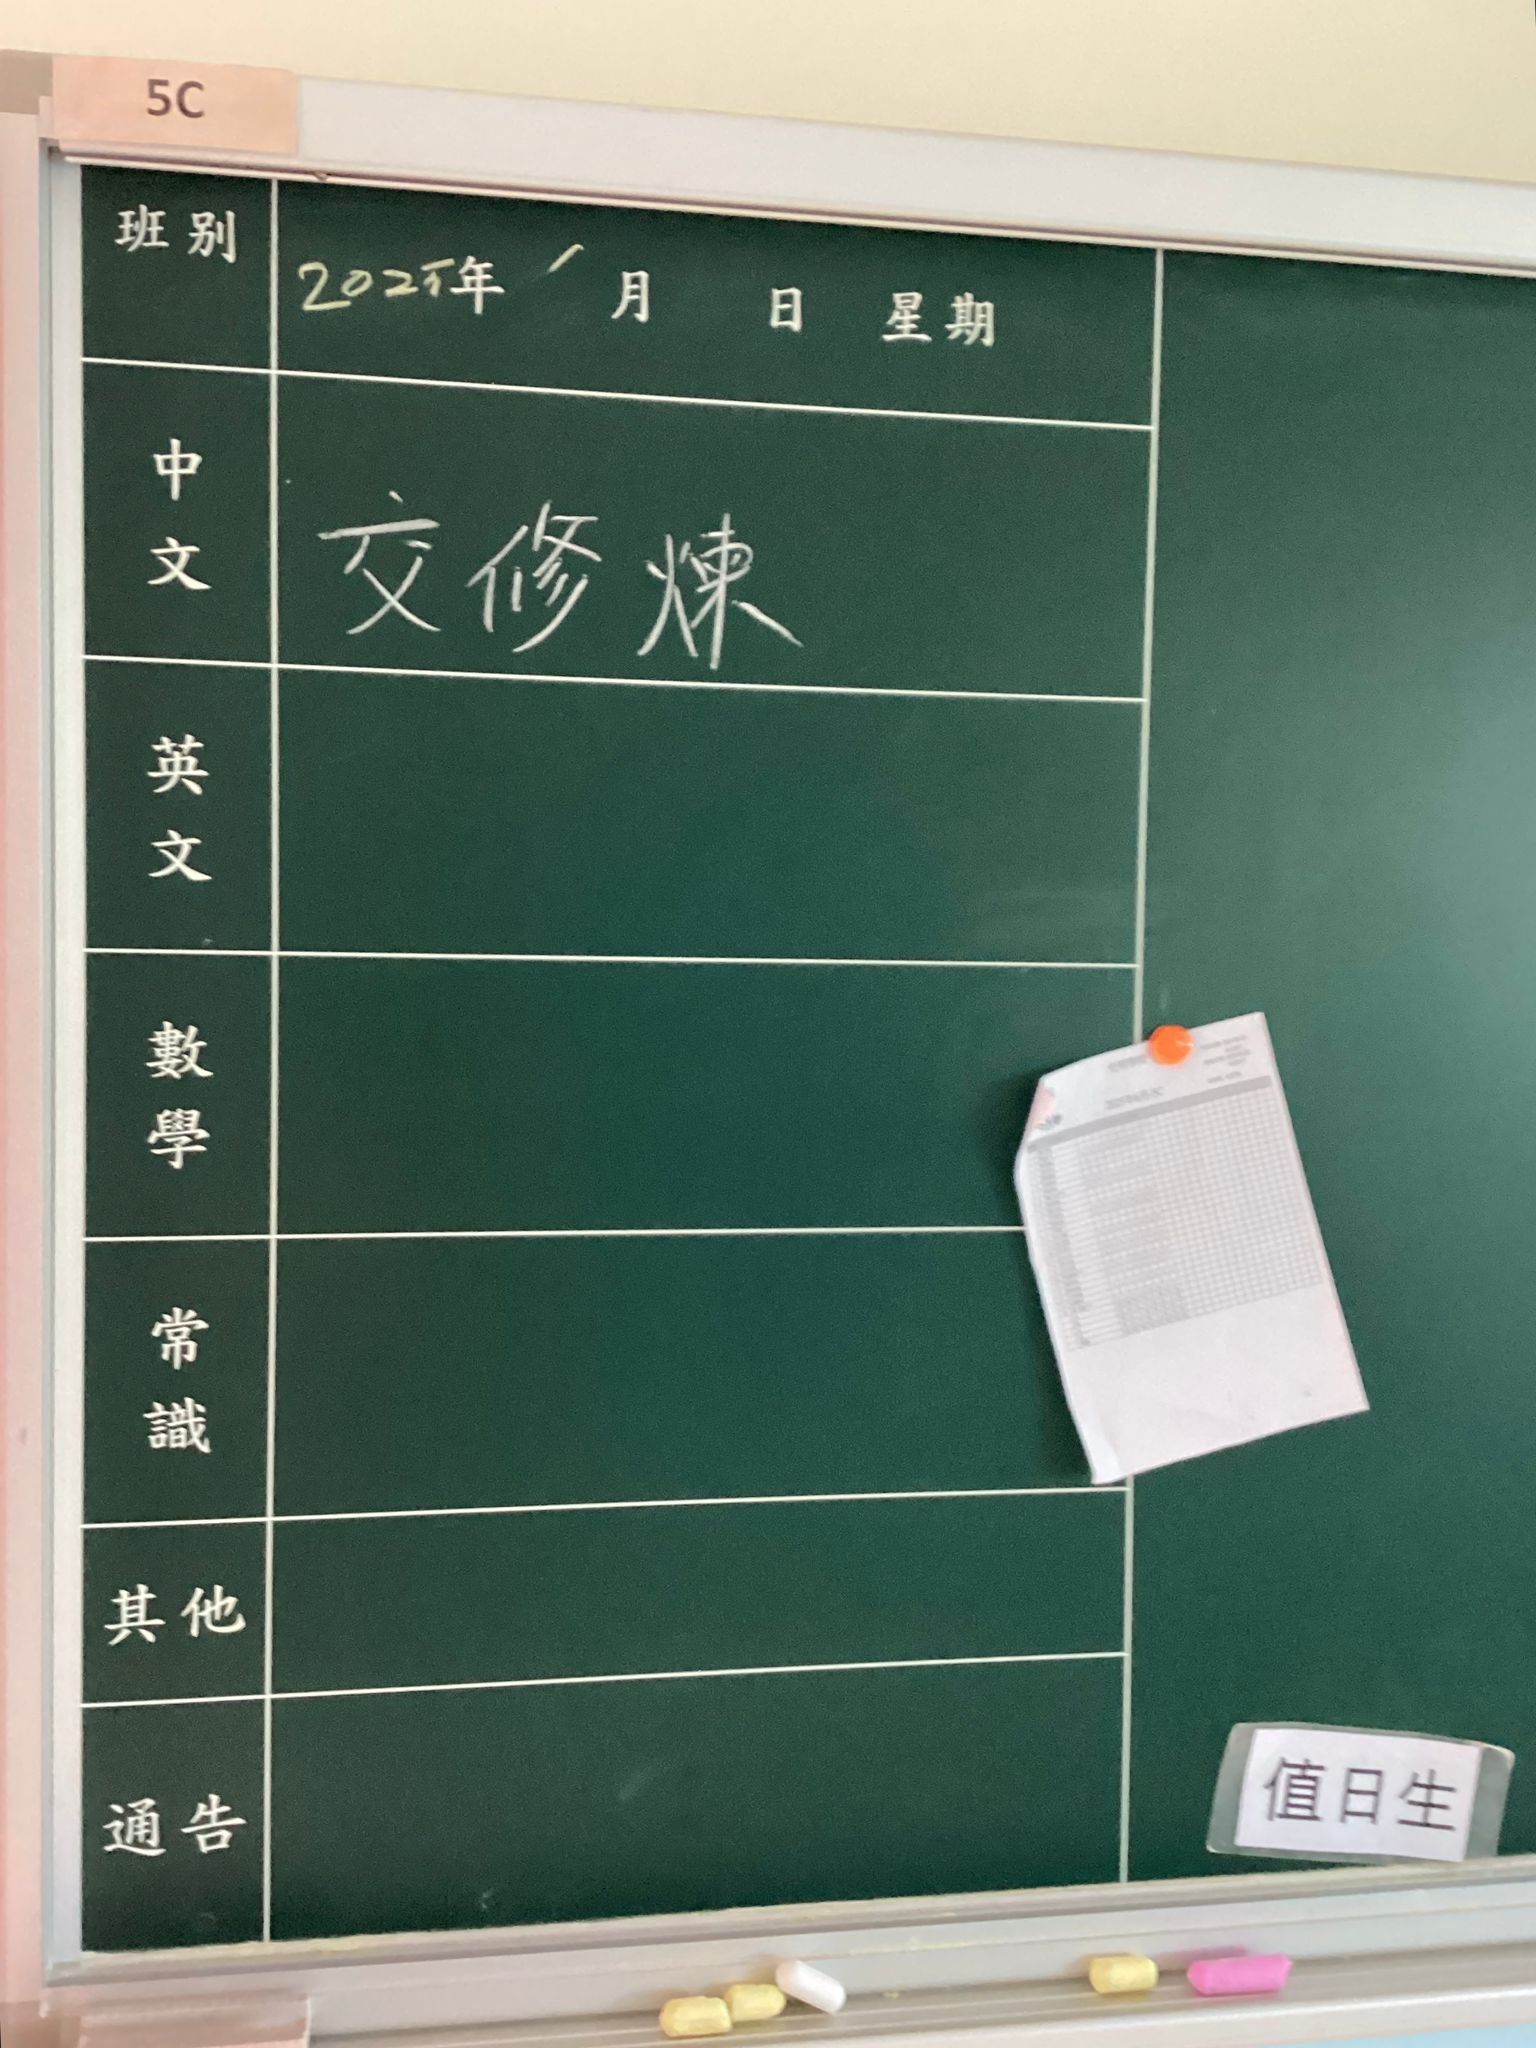 5C
班別
2025年 1月 日 星期
中文
交修煉
英文
數學
常識
其他
通告
值日生